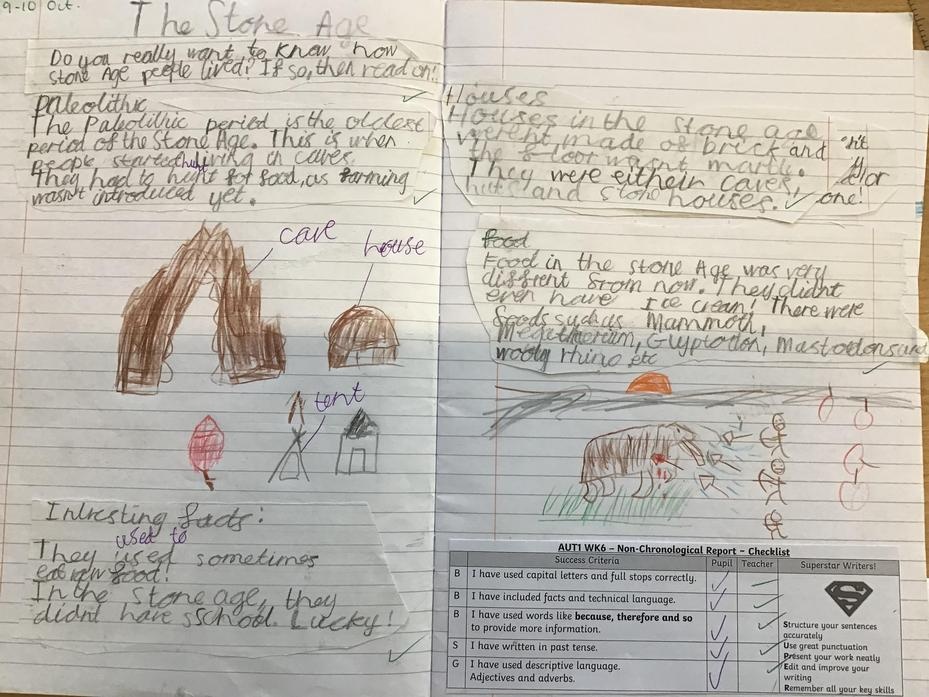 9-10 Oct.
The Stone Age
Do you really want to know how
Stone Age people lived? If so, then read on!
Paleolithic
The Paleolithic period is the oldest
period of the Stone Age. This is when
people started living in caves.
hunt
They had to hunt for food, as farming
wasnt introduced yet.
cave
house
tent
Intresting facts:
used to
They used sometimes
eat raw food!
In the stone age, they
didnt have sschool. Lucky!
Houses
Houses in the stone age
werent made of brick and
the floor wasnt marly.
They were eitherh caves,
huts and stone houses.
or
one!
food
Food in the stone Age was very
diffrent from now. They didnt
even have Ice cream! There were
foods such as Mammoth,
Megatherium, Glyptodon, Mastodons and
wooly rhino etc
AUT1 WK6 – Non-Chronological Report – Checklist
Success Criteria Pupil Teacher Superstar Writers!
B I have used capital letters and full stops correctly.
B I have included facts and technical language.
B I have used words like because, therefore and so
to provide more information.
S I have written in past tense.
G I have used descriptive language.
Adjectives and adverbs.
S
Structure your sentences
accurately
Use great punctuation
Present your work neatly
Edit and improve your
writing
Remember all your key skills